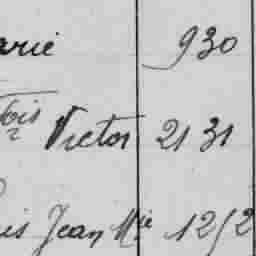 arie 930
fois Victor 2131
is Jean Mie 1252